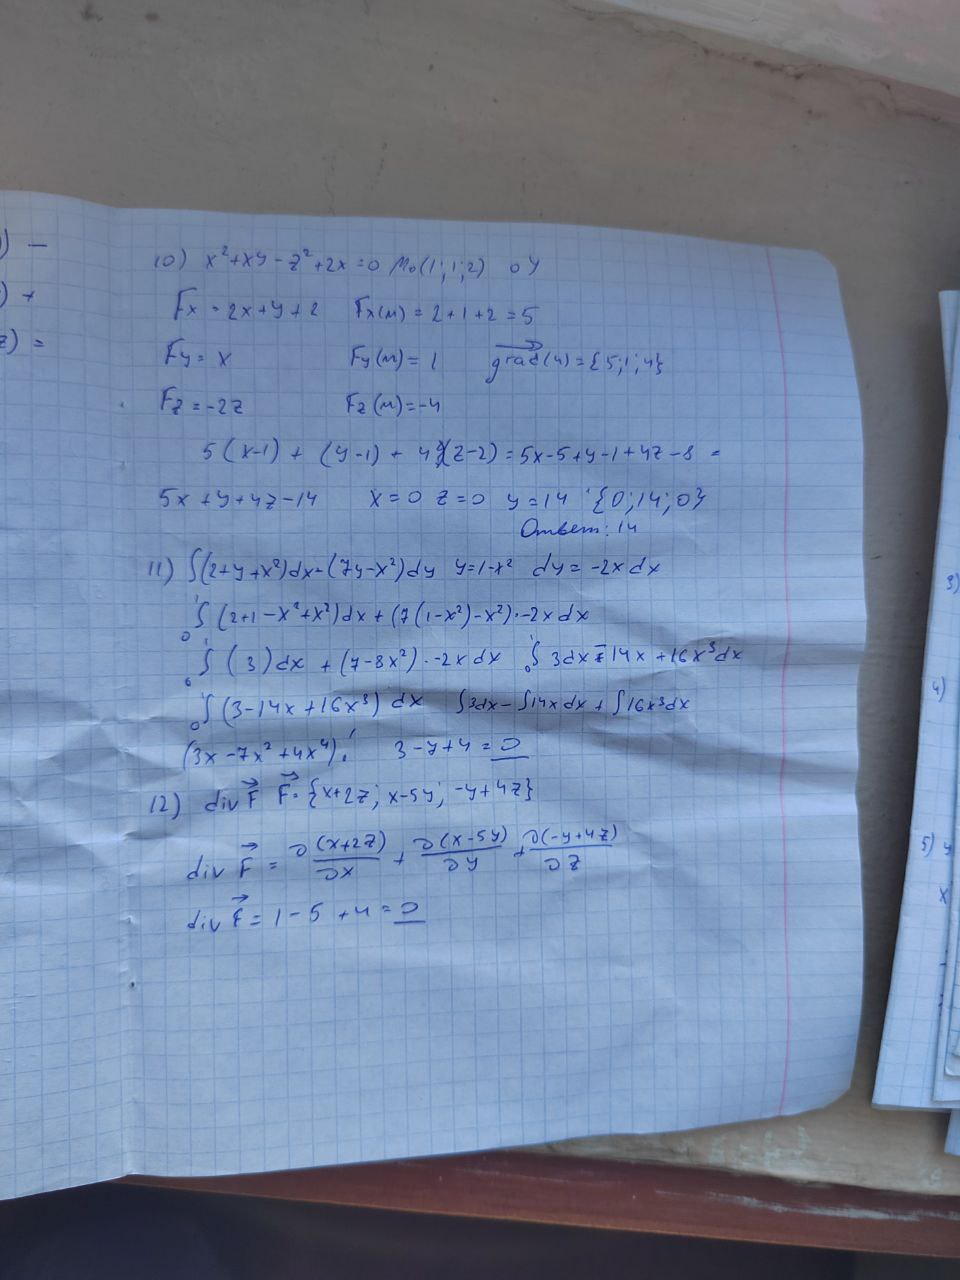 ) —
) +
z) =
10) x²+xy-z²+2x=0 M₀(1;1;2) oy
Fx = 2x+y+2 Fx(м) = 2+1+2 = 5
Fy = x Fy(м) = 1 grad(4) = {5;1;4}
Fz = -2z Fz(м) = -4
5(x-1) + (y-1) + 4(z-2) = 5x-5+y-1+4z-8 =
5x+y+4z-14 x=0 z=0 y=14 {0;14;0}
Ответ: 14
11) ∫(2+y+x²)dx+(7y-x²)dy y=1-x² dy=-2x dx
₀∫¹ (2+1-x²+x²)dx+(7(1-x²)-x²)·-2x dx
₀∫¹ (3)dx + (7-8x²)·-2x dx ₀∫¹ 3dx-14x+16x³dx
₀∫¹ (3-14x+16x³) dx ∫3dx-∫14x dx+∫16x³dx
(3x-7x²+4x⁴)|₀¹ 3-7+4=0
12) div F⃗ F⃗ = {x+2z; x-5y; -y+4z}
div F⃗ = ∂(x+2z)/∂x + ∂(x-5y)/∂y + ∂(-y+4z)/∂z
div F⃗ = 1-5+4=0
3)
4)
5) y
x